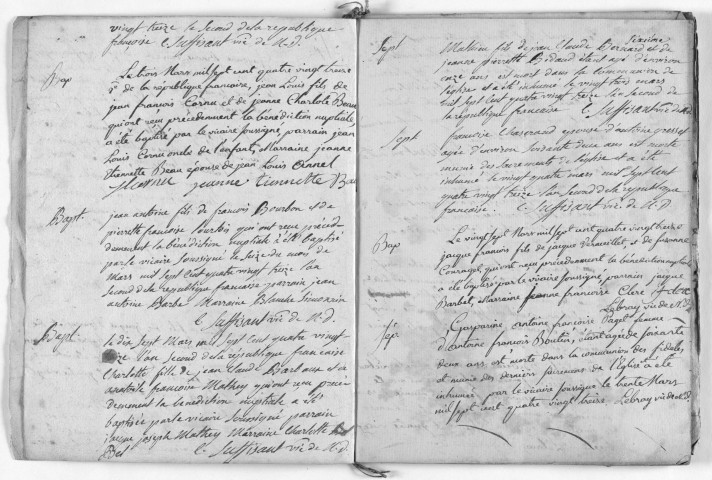 vingt treize le second de la republique
françoise C. Suffisant vic de N.D.
Bap
Le trois Mars mil sept cent quatre vingt treize
de la republique francoise, jean Louis fils de
jean francois Cornu et de jeanne Charlote Beau
qui ont reçu précédemment la bénédiction nuptiale
a été baptisé par le vicaire soussigné, parrain jean
Louis Cornu oncle de l'enfant, Marraine jeanne
thiennette Beau épouse de jean Louis
jeanne tiennette Bau
Bapt.
jean antoine fils de francois Bourbon et de
pierrette francoise qui ont reçu précé-
demment la bénédiction nuptiale a été baptisé
par le vicaire soussigné le seize du mois de
Mars mil sept cent quatre vingt treize l'an
second de la republique francoise parrain jean
antoine Barbe Marraine Blanche
C. Suffisant vic de N.D.
Bapt.
le dix Sept Mars mil Sept cent quatre vingt
treize l'an second de la republique francoise
Charlotte fille de jean Claude et
francoise Mathey qui ont reçu préce-
demment la bénédiction nuptiale a été
baptisée par le vicaire soussigné parrain
joseph Mathey Marraine Charlotte
C. Suffisant vic de N.D.
Sept
Mathieu fils de jean Claude Bernard et de
jeanne pierrette Bidard étant agé d'environ
onze ans est mort dans la communion de
l'église et a été inhumé le vingt trois mars
mil sept cent quatre vingt treize l'an second de
la republique francoise C. Suffisant vic de N.D.
Sept.
francoise épouse d'antoine
agée d'environ soixante deux ans est morte
munie des sacrements de l'église et a été
inhumée le vingt quatre mars mil sept cent
quatre vingt treize l'an second de la republique
francoise. C. Suffisant vic de N.D.
Bap
Le vingt sept Mars mil sept cent quatre vingt treize
jaque francois fils de jaque et de
qui ont reçu précédemment la bénédiction nuptiale
a été baptisé par le vicaire soussigné, parrain jaque
Barbet, Marraine jeanne francoise Clerc
Lebray vic de N.D.
Sep.
Gasparine antoine francoise Paget
d'antoine francois étant agée de soixante
deux ans est morte dans la communion des fidelles
et munie des derniers sacremens de l'Église a été
inhumée par le vicaire soussigné le trente Mars
mil sept cent quatre vingt treize Lebray vic de N.D.